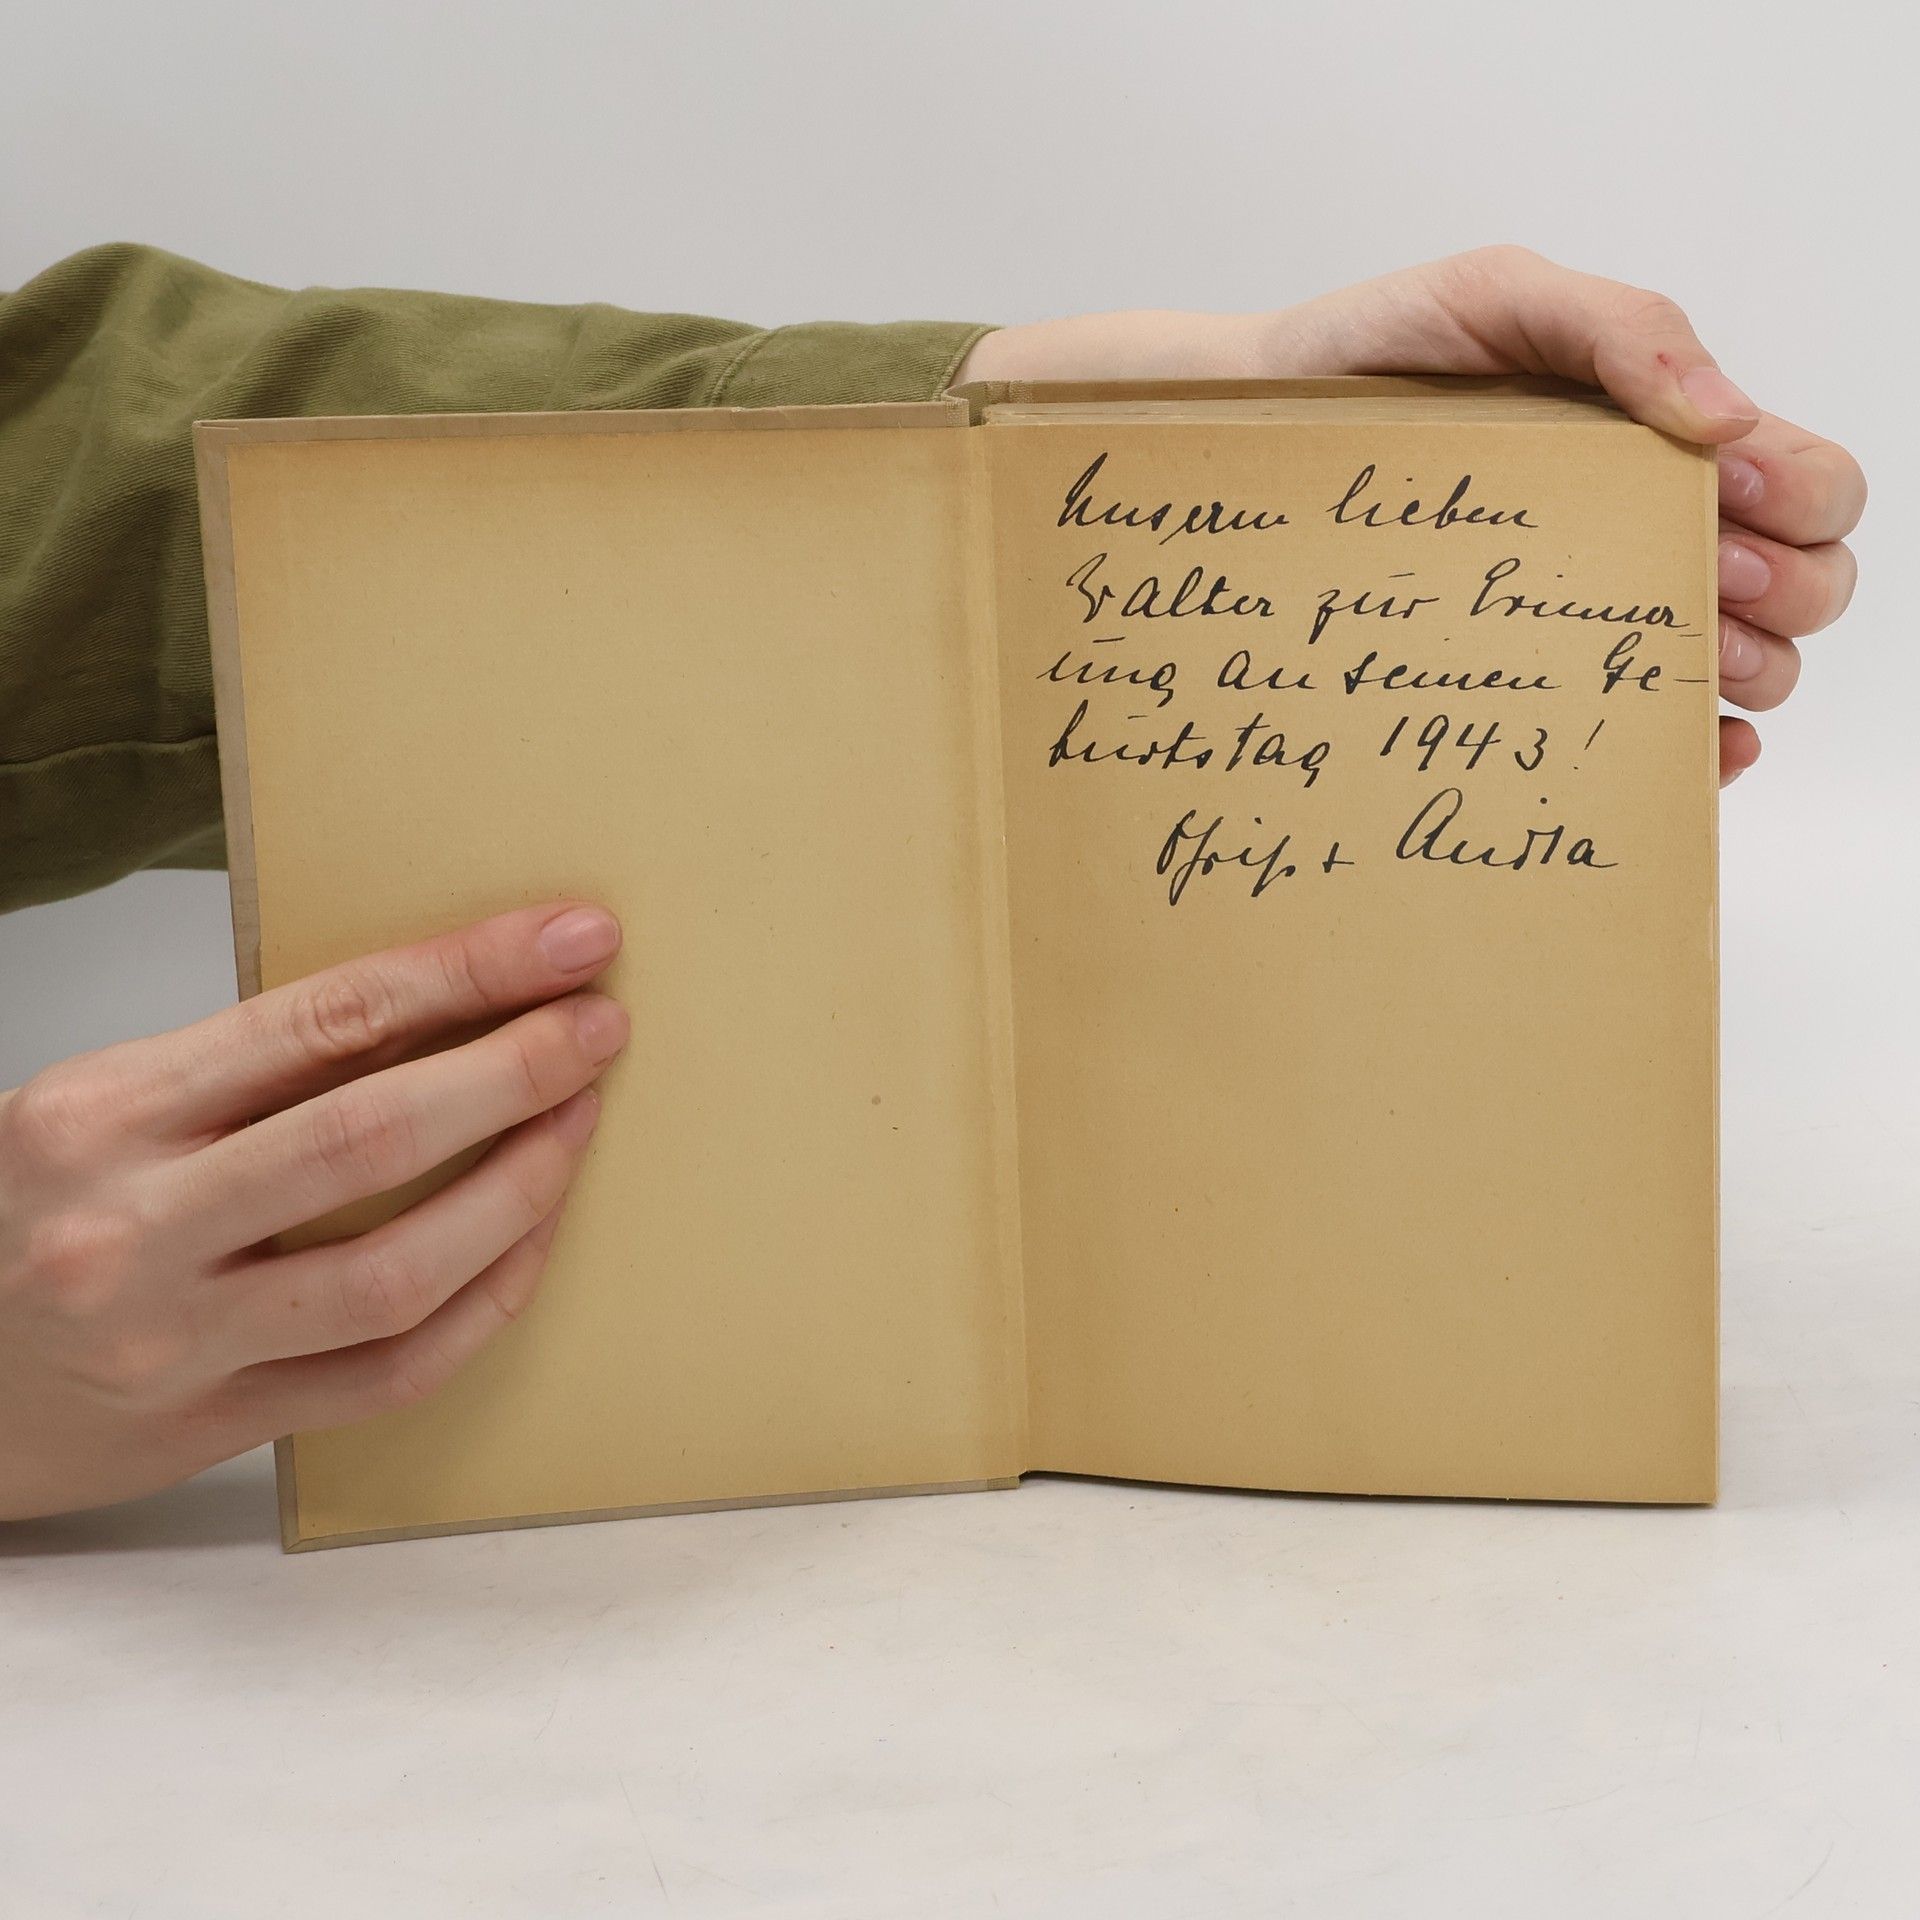 Unserm lieben
Walter zur Erinner-
ung an seinen Ge-
burtstag 1943!
+